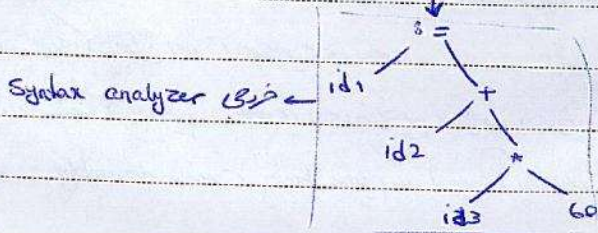 :=
Syntax analyzer خروجی ← id1
+
id2
*
id3 60